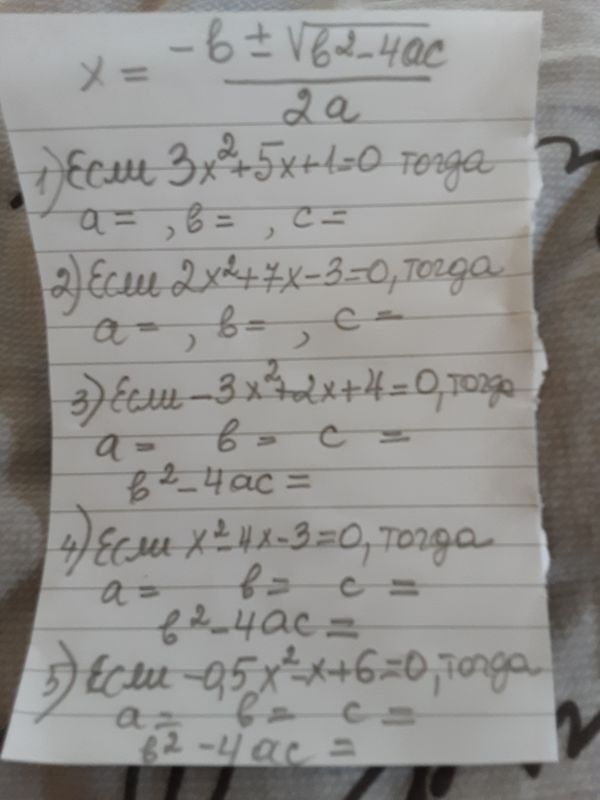 x = -в ± √в²-4ac / 2a
1) Если 3x²+5x+1=0 тогда
a= , в= , c=
2) Если 2x²+7x-3=0, тогда
a= , в= , c=
3) Если -3x²+2x+4=0, тогда
a= в= c =
в²-4ac=
4) Если x²-4x-3=0, тогда
a= в= c =
в²-4ac=
5) Если -0,5x²-x+6=0, тогда
a= в= c =
в²-4ac =